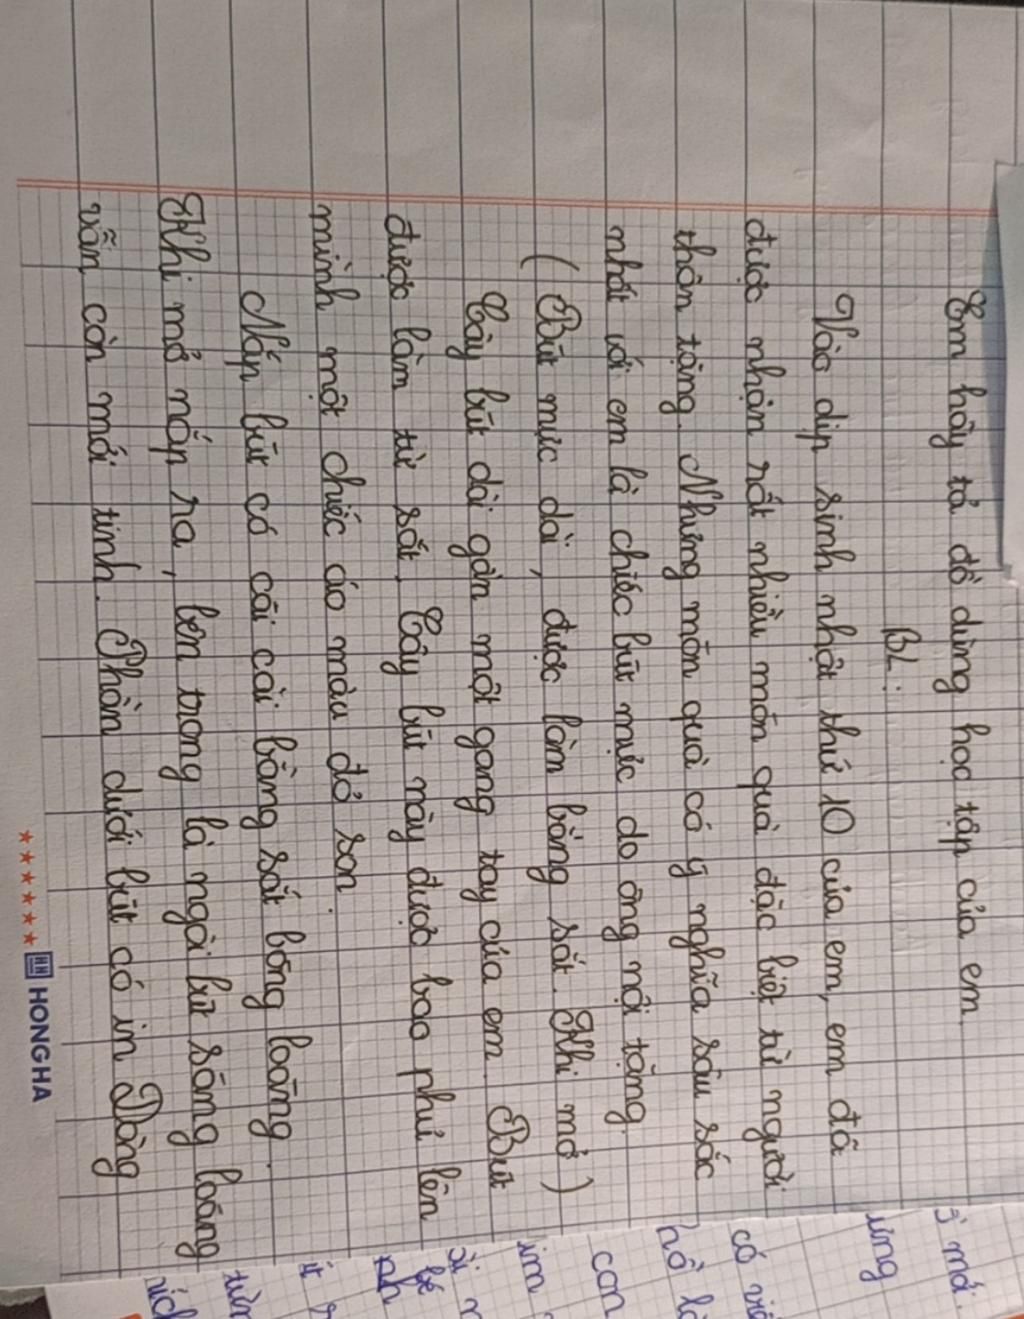 Em hãy tả đồ dùng học tập của em
BL:
Vào dịp sinh nhật thứ 10 của em, em đã
được nhận rất nhiều món quà đặc biệt từ người
thân tặng. Nhưng món quà có ý nghĩa sâu sắc
nhất với em là chiếc bút mực do ông nội tặng.
(Bút mực dài, được làm bằng sắt. Khi mở)
Cây bút dài gần một gang tay của em. Bút
được làm từ sắt. Cây bút này được bao phủ lên
mình một chiếc áo màu đỏ son.
Nắp bút có cái cài bằng sắt bóng loáng.
Khi mở nắp ra, bên trong là ngòi bút sáng loáng
vẫn còn mới tinh. Phần dưới bút có in Dòng
HONG HA
mới.
ứng
có
hồ
con
im
bé